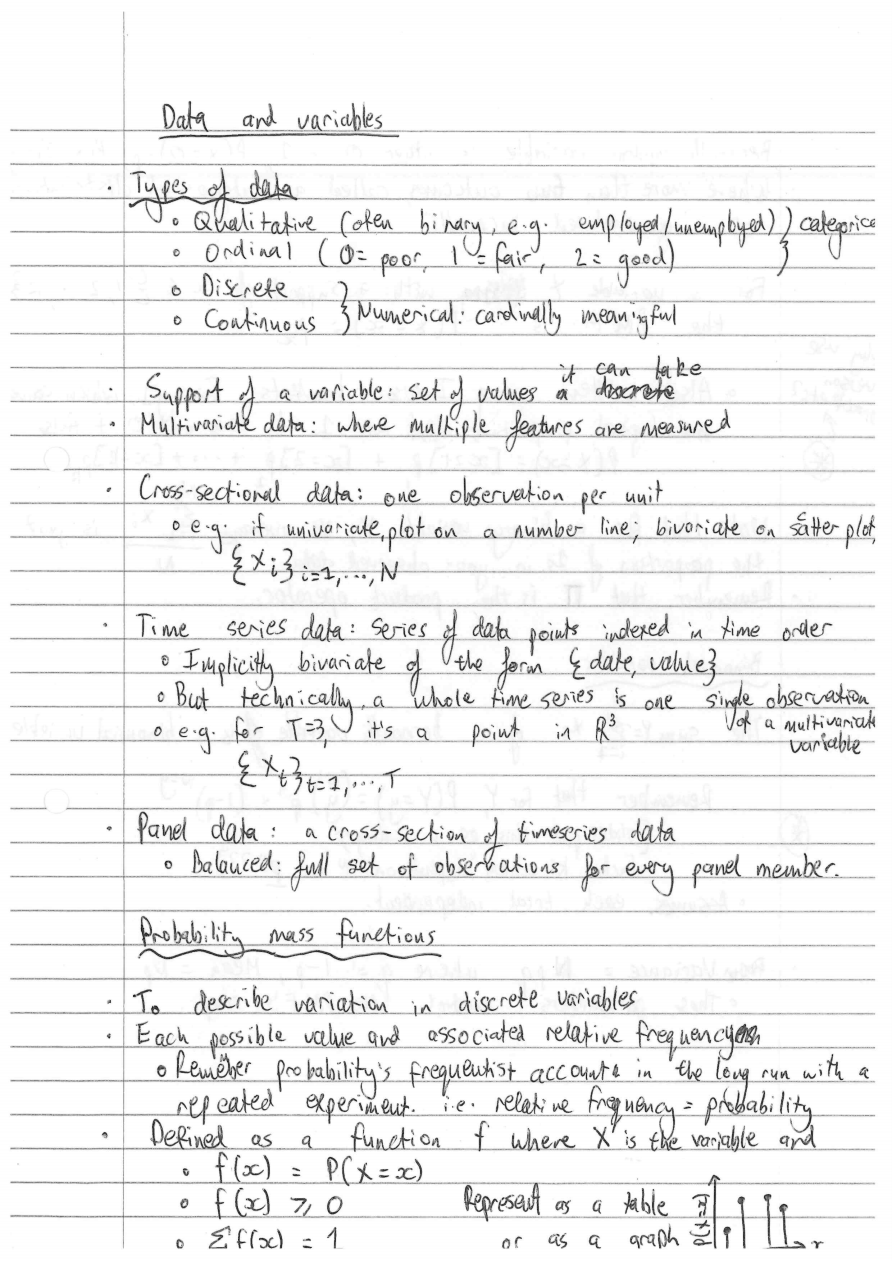 Data and variables
• Types of data
o Qualitative (often binary, e.g. employed/unemployed) } categorica
o Ordinal (0= poor, 1 = fair, 2 = good)
o Discrete
o Continuous } Numerical: cardinally meaningful
it can take
• Support of a variable: set of values
• Multivariate data: where multiple features are measured
• Cross-sectional data: one observation per unit
o e.g. if univariate, plot on a number line; bivariate on satter plot,
c
{Xi}i=1,...,N
• Time series data: series of data points indexed in time order
o Implicitly bivariate of the form {date, value}
o But technically, a whole time series is one single observation
of a multivariate
variable
o e.g. for T=3, it's a point in R³
{Xt}t=1,...,T
• Panel data: a cross-section of timeseries data
o Balanced: full set of observations for every panel member.
Probability mass functions
• To describe variation in discrete variables
• Each possible value and associated relative frequency
o Remember probability's frequentist accounts in the long run with a
repeated experiment. i.e. relative frequency = probability
• Defined as a function f where X is the variable and
o f(x) = P(X=x)
o f(x) ⩾ 0 Represent as a table
o Σf(x) = 1 or as a graph
x